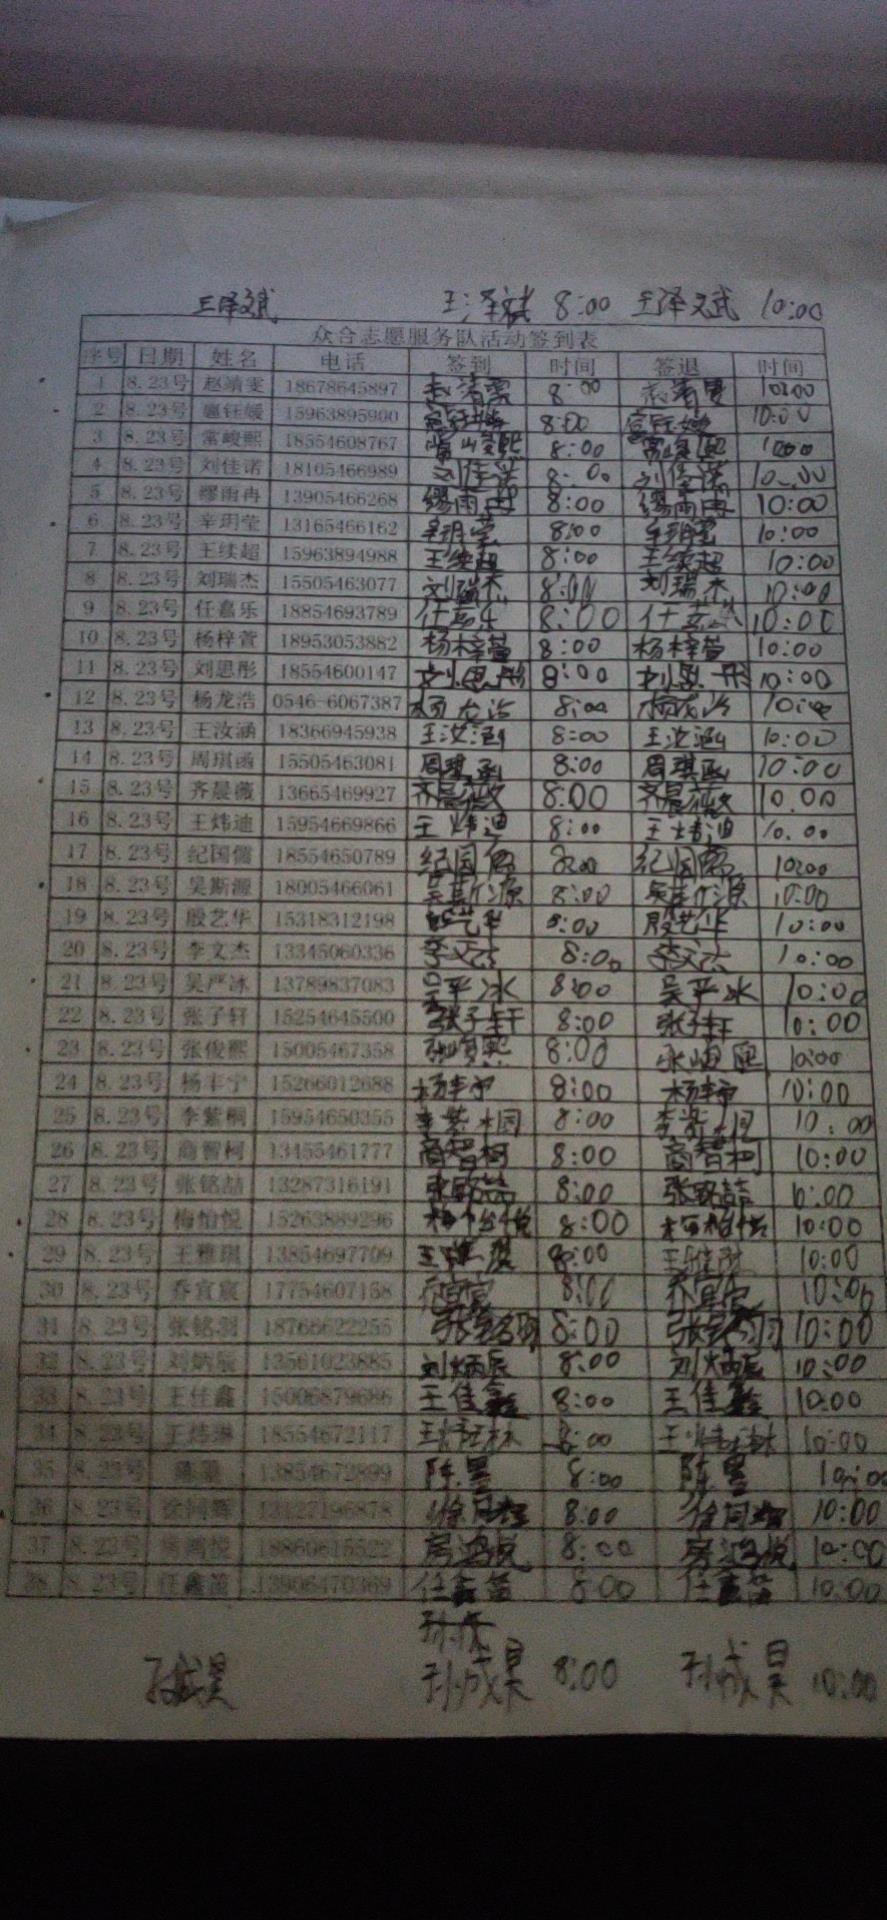 王泽斌 王泽斌 8:00 王泽斌 10:00
众合志愿服务队活动签到表
序号 日期 姓名 电话 签到 时间 签退 时间
1 8.23号 赵靖雯 18678645897 8:00 10:00
2 8.23号 扈钰媛 15963895900 扈钰媛 8:00 扈钰媛 10:00
3 8.23号 常峻熙 18554608767 常峻熙 8:00 常峻熙 10:00
4 8.23号 刘佳诺 18105466989 刘佳诺 8:00 刘佳诺 10:00
5 8.23号 缪雨冉 13905466268 缪雨冉 8:00 缪雨冉 10:00
6 8.23号 辛玥莹 13165466162 辛玥莹 8:00 辛玥莹 10:00
7 8.23号 王续超 15963894988 王续超 8:00 王续超 10:00
8 8.23号 刘瑞杰 15505463077 刘瑞杰 8:00 刘瑞杰 10:00
9 8.23号 任嘉乐 18854693789 任嘉乐 8:00 任嘉乐 10:00
10 8.23号 杨梓萱 18953053882 杨梓萱 8:00 杨梓萱 10:00
11 8.23号 刘思彤 18554600147 刘思彤 8:00 刘思彤 10:00
12 8.23号 杨龙浩 0546-6067387 杨龙浩 8:00 杨龙浩 10:00
13 8.23号 王汝涵 18366945938 王汝涵 8:00 王汝涵 10:00
14 8.23号 周琪函 15505463081 周琪函 8:00 周琪函 10:00
15 8.23号 齐晨薇 13665469927 齐晨薇 8:00 齐晨薇 10.00
16 8.23号 王炜迪 15954669866 王炜迪 8:00 王炜迪 10.00
17 8.23号 纪国儒 18554650789 纪国儒 8:00 纪国儒 10:00
18 8.23号 吴斯源 18005466061 吴斯源 8:00 吴斯源 10:00
19 8.23号 殷艺华 15318312198 殷艺华 8:00 殷艺华 10:00
20 8.23号 李文杰 13345060336 李文杰 8:00 李文杰 10:00
21 8.23号 吴严冰 13789837083 冰 8:00 冰 10:00
22 8.23号 张子轩 15254645500 张子轩 8:00 张子轩 10:00
23 8.23号 张俊熙 15005467358 8:00 10:00
24 8.23号 杨丰宁 15266012688 杨丰宁 8:00 杨丰宁 10:00
25 8.23号 李紫桐 15954650355 李紫桐 8:00 李紫桐 10:00
26 8.23号 商智柯 13455461777 商智柯 8:00 商智柯 10:00
27 8.23号 张铭喆 13287316191 张铭喆 8:00 张铭喆 10:00
28 8.23号 梅怡悦 15263889296 梅怡悦 8:00 梅怡悦 10:00
29 8.23号 王雅琪 13854697709 王雅琪 8:00 王雅琪 10:00
30 8.23号 乔宜宸 17754607158 乔宜宸 8:00 乔宜宸 10:00
31 8.23号 张铭羽 18766622255 张铭羽 8:00 张铭羽 10:00
32 8.23号 刘炳辰 13561023885 刘炳辰 8:00 刘炳辰 10:00
33 8.23号 王佳鑫 15006879686 王佳鑫 8:00 王佳鑫 10:00
34 8.23号 18554672117 8:00 10:00
35 8.23号 陈墨 13854672899 陈墨 8:00 陈墨 10:00
36 8.23号 徐同辉 13127196878 徐同辉 8:00 徐同辉 10:00
37 8.23号 房鸿悦 18860615522 房鸿悦 8:00 房鸿悦 10:00
38 8.23号 任鑫苗 13906470369 任鑫苗 8:00 任鑫苗 10:00
孙成昊 孙成昊 8:00 孙成昊 10:00